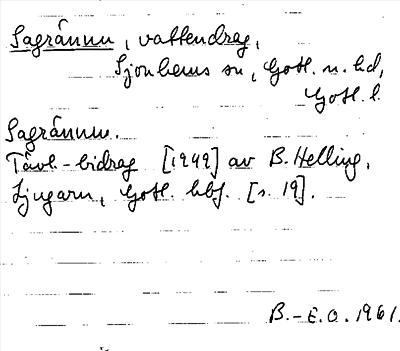 Sagrännu, vattendrag,
Sjonhems sn, Gotl. n. hd,
Gotl. l.
Sagrännu.
Tävl.-bidrag [1949] av B. Helling,
Ljugarn, Gotl. hbf. [s. 19].
B.-E.O. 1961.